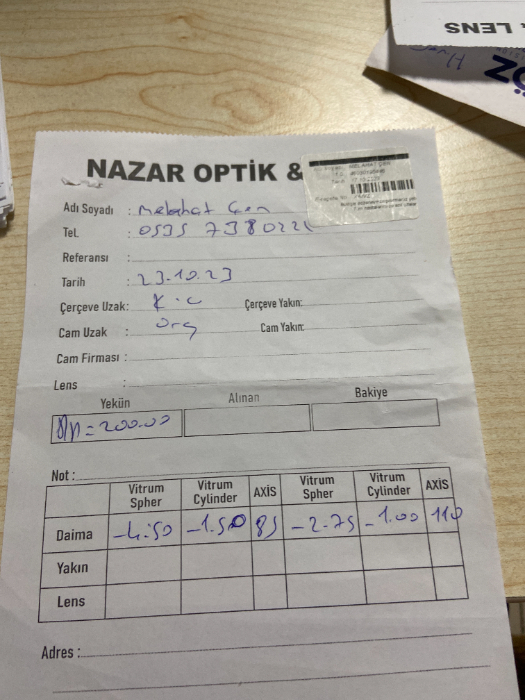 LENS
ÖZ
NAZAR OPTİK &
Adı Soyadı : Melahat
Tel. : 0535 7380221
Referansı :
Tarih : 23.10.23
Çerçeve Uzak: K.C Çerçeve Yakın:
Cam Uzak : Org Cam Yakın:
Cam Firması :
Lens :
Yekün Alınan Bakiye
= 200.00
Not :
Vitrum Spher Vitrum Cylinder AXİS Vitrum Spher Vitrum Cylinder AXİS
Daima -4.50 -1.50 85 -2.75 -1.00 110
Yakın
Lens
Adres :